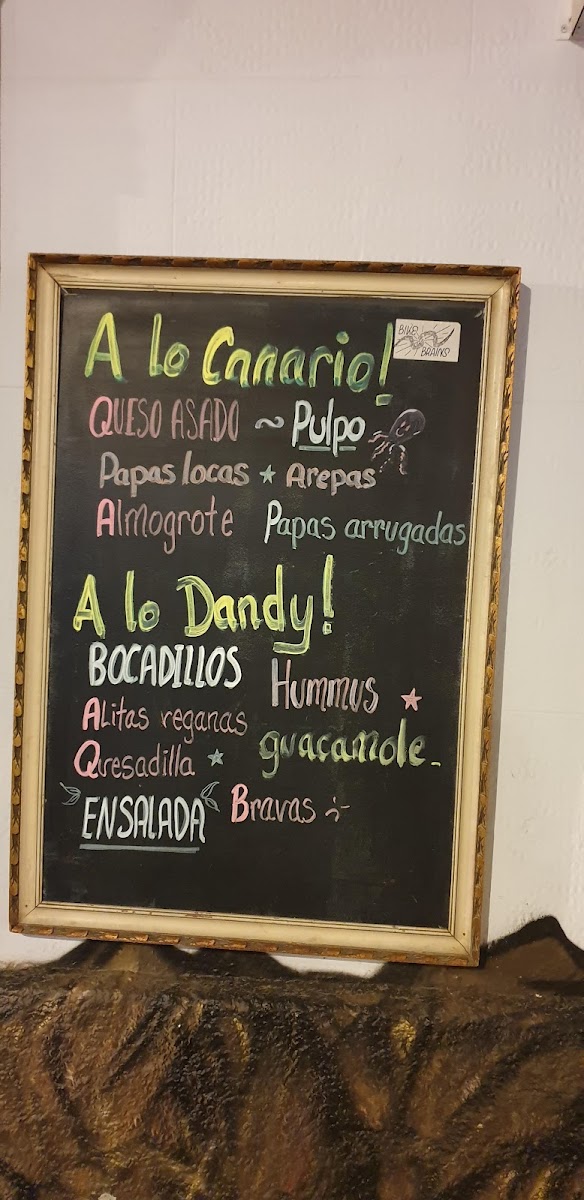 A lo Canario!
BIKE BRAINS
QUESO ASADO ~ Pulpo
Papas locas * Arepas
Almogrote Papas arrugadas
A lo Dandy!
BOCADILLOS
Hummus
Alitas veganas
guacamole
Quesadilla
ENSALADA
Bravas